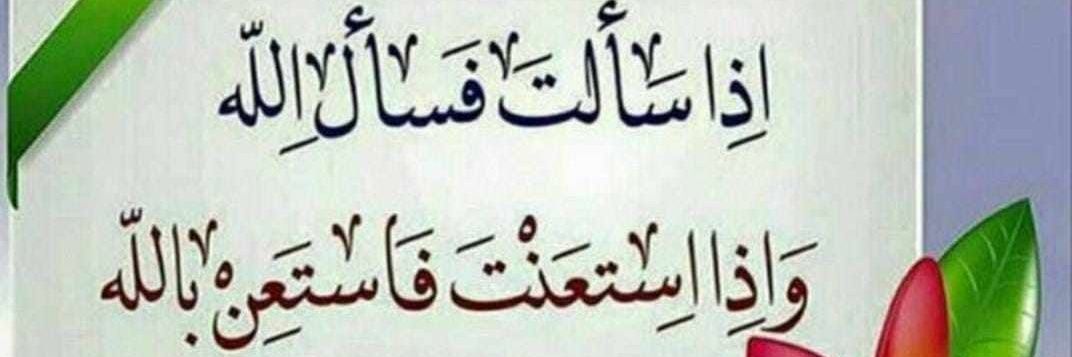 اِذِا سَألتَ فَسألِ اِللّه
وَاِذِا اِستعَنْتَ فَاستَعِنْ بِاللّه